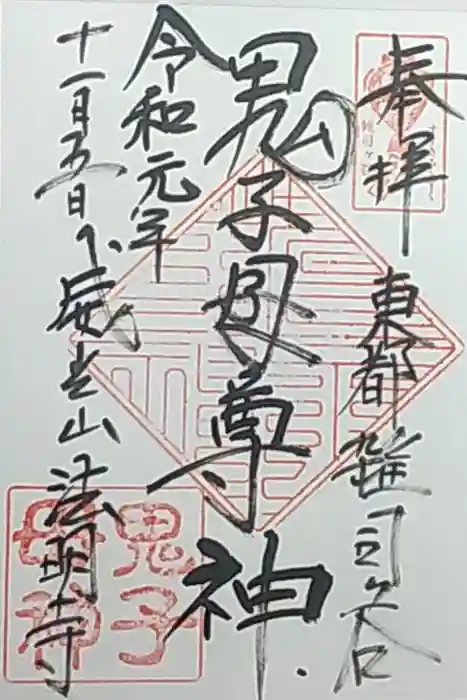 奉拝
東都雑司ヶ谷
鬼子母尊神
令和元年
十一月五日
威光山法明寺
鬼子
母神